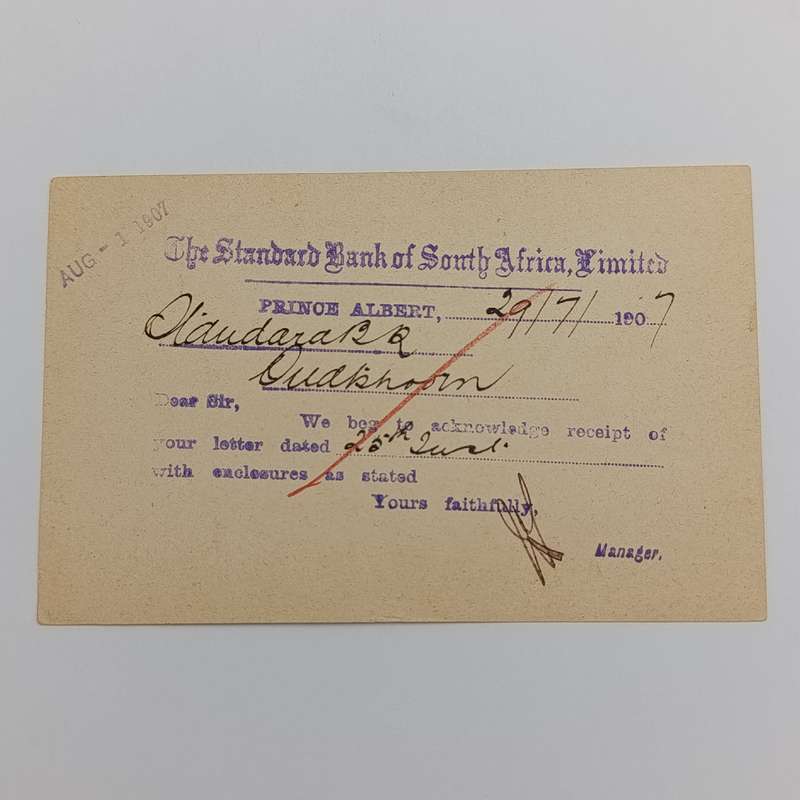 AUG - 1 1907
The Standard Bank of South Africa, Limited
PRINCE ALBERT, 29/7/ 1907
Standard Bk
Oudtshoorn
Dear Sir,
We beg to acknowledge receipt of
your letter dated 25th Inst.
with enclosures as stated
Yours faithfully,
Manager.